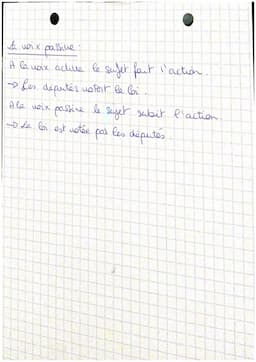 La voix passive :
A la voix active le sujet fait l'action.
→ Les députés votent la loi.
A la voix passive le sujet subit l'action.
→ La loi est votée par les députés.